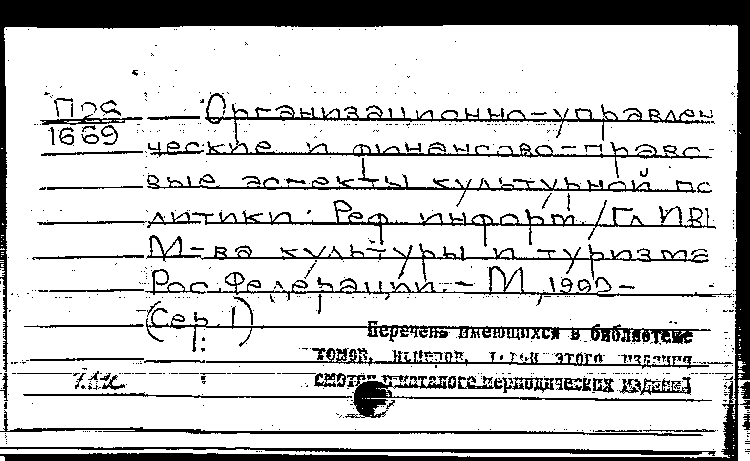 Поя Организационно-управлен
1669 ческие и финансово-право-
вые аспекты культурной по
литики: Реф. информ. / Гл ИВЦ
М-ва культуры и туризма
Рос. Федерации. - М, 1990 -
(Сер. 1)
Перечень имеющихся в библиотеке
томов, номеров, этого издания
смотри в каталоге периодических изданий